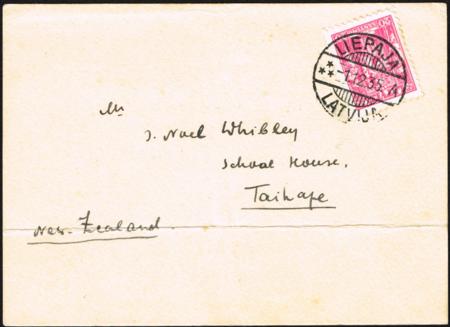 LIEPAJA
-1.12.35.-4
LATVIJA
20
Mr
J. Noel Whibley
School House.
Taihape
New-Zealand.